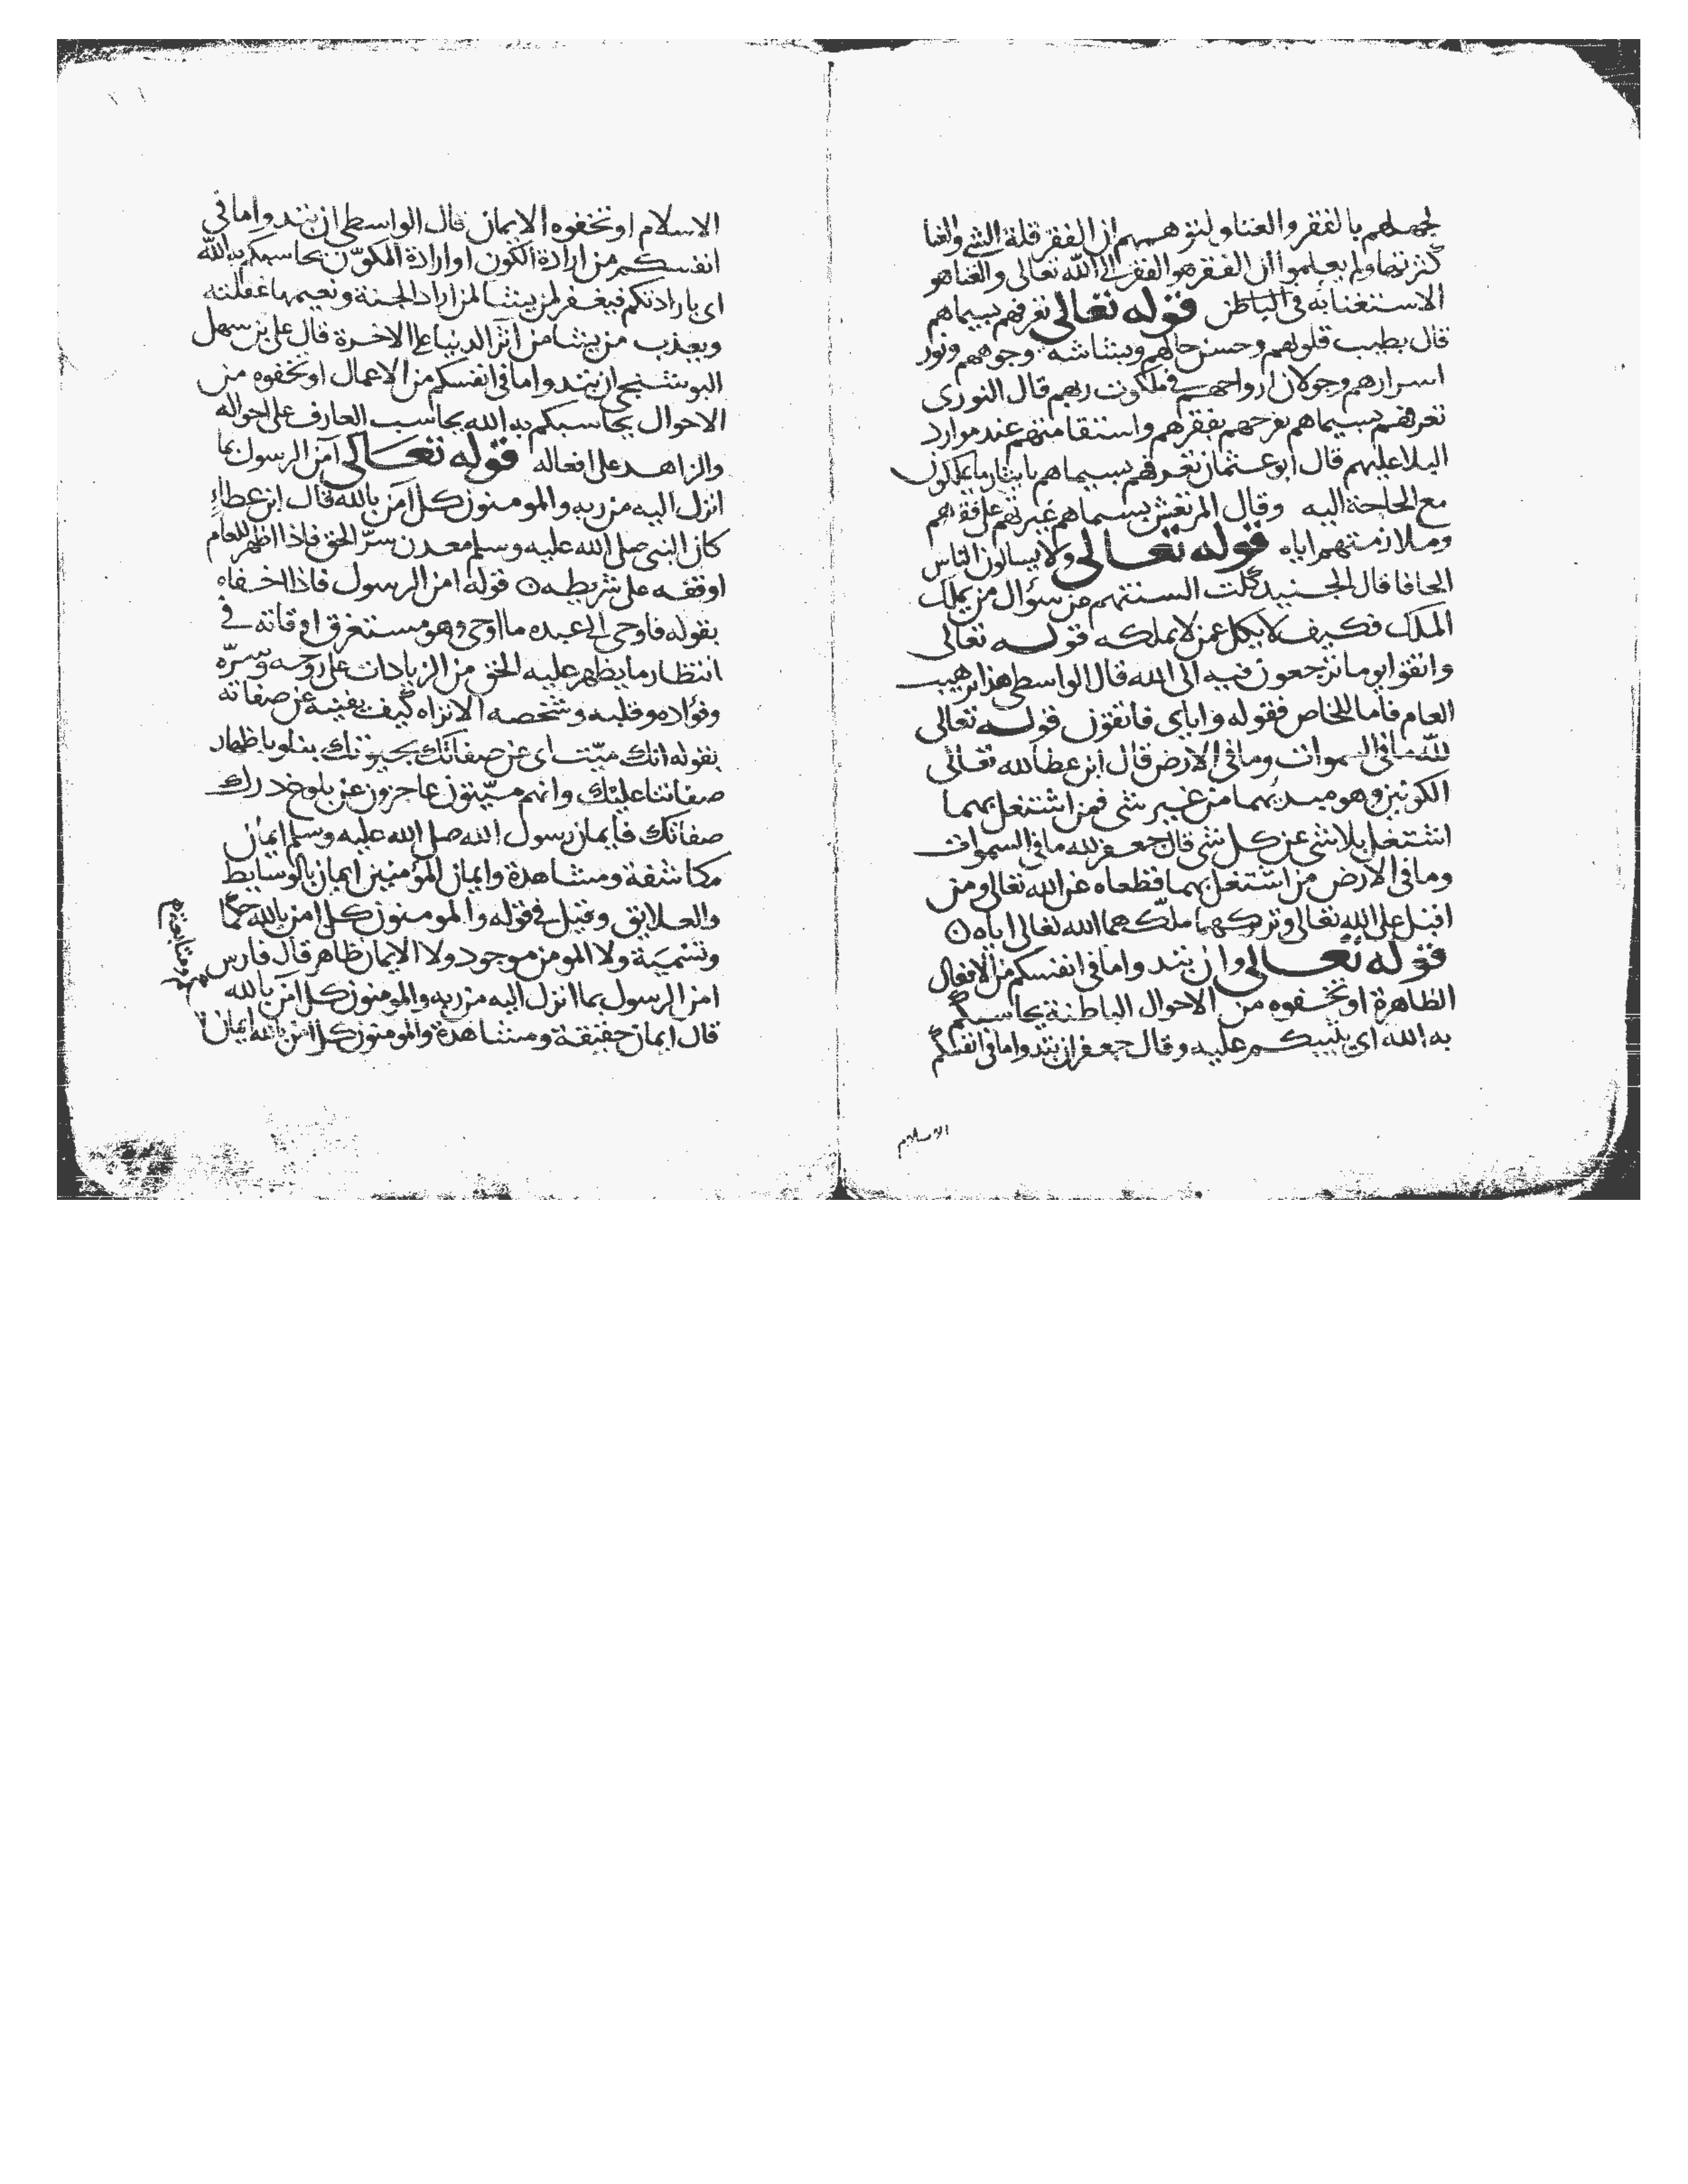 لجهلهم بالفقر والغنا ولتوهمهم ان الفقر قلة الشي والغنا
كثرتها ولم يعلموا ان الفقر هو الفقر الى الله تعالى والغنا هو
الاستغنا به فى الباطن قوله تعالى تعرفهم بسيماهم
قال بطيب قلوبهم وحسن حالهم وبشاشه وجوههم ونور
اسرارهم وجولان ارواحهم فى ملكوت ربهم قال النورى
تعرفهم بسيماهم بفرحهم بفقرهم واستقامتهم عند موارد
البلا عليهم قال ابو عثمان تعرفهم بسيماهم بايثار ما يملكون
مع الحاجة اليه وقال المرتعش بسيماهم غيرتهم على فقرهم
وملازمتهم اياه قوله تعالى ولا يسالون الناس
الحافا قال الجنيد كلت السنتهم عن سؤال من يملك
الملك فكيف لا يكل عمن لا يملكه قوله تعالى
واتقوا يوما ترجعون فيه الى الله قال الواسطى هذا ترهيب
العام فاما للخاص فقوله واياى فاتقون قوله تعالى
لله ما فى السموات وما فى الارض قال ابن عطا لله تعالى
الكونين وهو مبديهما من غير شى فمن اشتغل بهما
اشتغل بلا شى عن كل شى قال جعفر لله ما فى السموات
وما فى الارض من اشتغل بهما قطعاه عن الله تعالى ومن
اقبل على الله تعالى وتركهما ملكهما الله تعالى اياه ن
قوله تعالى وان تبدوا ما فى انفسكم من الافعال
الظاهرة او تخفوه من الاحوال الباطنة يحاسبكم
به الله اى يثيبكم عليه وقال جعفر ان تبدوا ما فى انفسكم
الاسلام
الاسلام او تخفوه الايمان قال الواسطى ان تبدوا ما فى
انفسكم من ارادة الكون او ارادة المكون يحاسبكم به الله
اى بارادتكم فيغفر لمن يشا لمن اراد الجنة ونعيمها غفلته
ويعذب من يشا من آثر الدنيا على الاخرة قال على بن سهل
البوشنجى ان تبدوا ما فى انفسكم من الاعمال او تخفوه من
الاحوال يحاسبكم به الله يحاسب العارف على احواله
والزاهد على افعاله قوله تعالى آمن الرسول بما
انزل اليه من ربه والمومنون كل آمن بالله قال ابن عطاء
كان النبى صلى الله عليه وسلم معدن سرّ الحق فاذا اظهر للعام
اوقفه على شريطه ن قوله امن الرسول فاذا اخفاه
بقوله فاوحى الى عبده ما اوحى وهو مستغرق اوقاته فى
انتظار ما يظهر عليه الحق من الزيادات على روحه وسرّه
وفؤاده وقلبه وشخصه الا تراه كيف يفنيه عن صفاته
بقوله انك ميّت اى عن صفاتك بحيوتك بنا وباظهار
صفاتنا عليك وانهم ميّتون عاجزون عن بلوغ درك
صفاتك فايمان رسول الله صلى الله عليه وسلم ايمان
مكاشفة ومشاهدة وايمان المؤمنين ايمان بالوسايط
والعلايق وقيل فى قوله والمومنون كل امن بالله حكما
وتسمية ولا المومن موجود ولا الايمان ظاهر قال فارس
امن الرسول بما انزل اليه من ربه والمومنون كل آمن بالله
قال ايمان حقيقة ومشاهدة والمومنون كل امن بالله ايمان